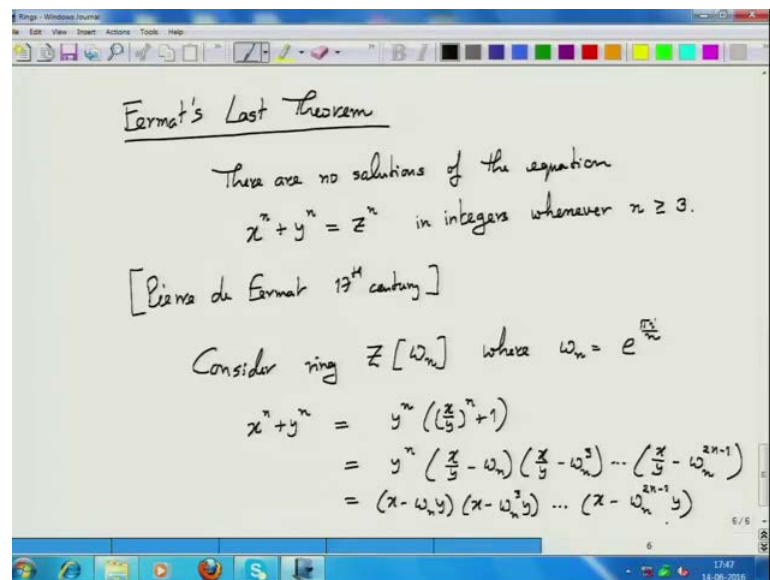 Rings - Windows Journal
File Edit View Insert Actions Tools Help
Fermat's Last Theorem
There are no solutions of the equation
xⁿ + yⁿ = zⁿ in integers whenever n ≥ 3.
[Pierre de Fermat 17th century]
Consider ring Z[ωₙ] where ωₙ = e^(πi/n)
xⁿ + yⁿ = yⁿ ((x/y)ⁿ + 1)
= yⁿ (x/y - ωₙ) (x/y - ωₙ³) ... (x/y - ωₙ²ⁿ⁻¹)
= (x - ωₙy) (x - ωₙ³y) ... (x - ωₙ²ⁿ⁻¹y)
6/6
6
17:47
14-06-2016